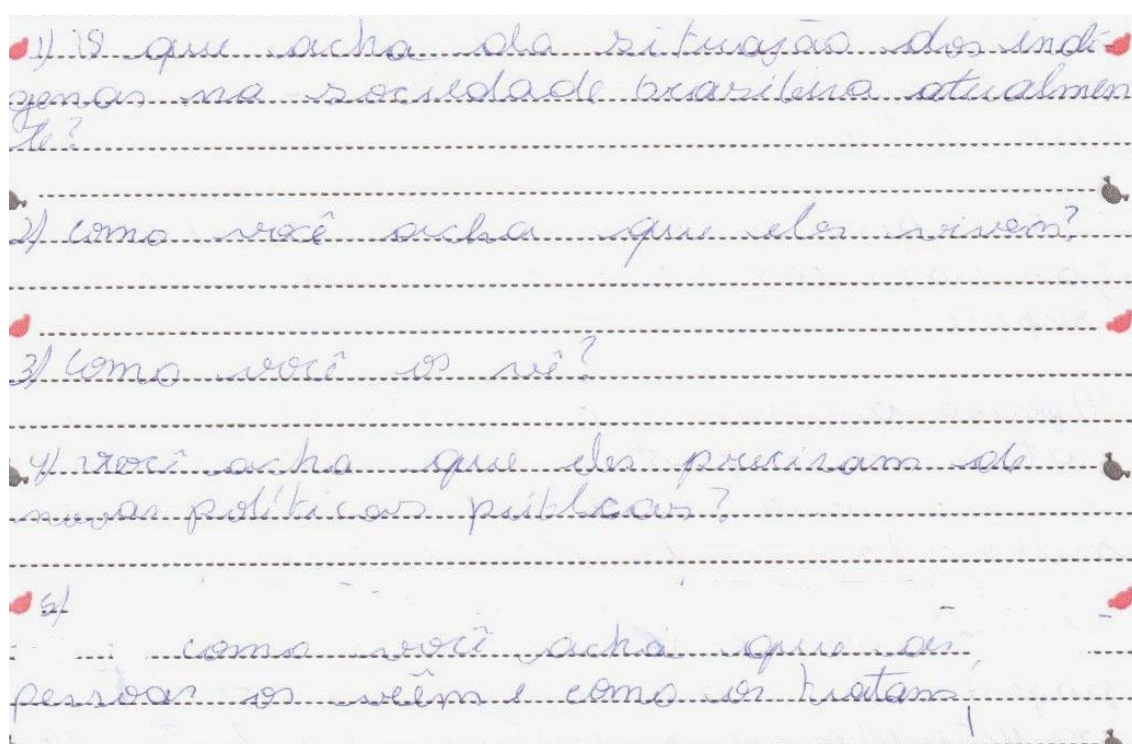 1) O que acha da situação dos indí-
genas na sociedade brasileira atualmen
te?
2) como você acha que eles vivem?
3) como você os vê?
4) você acha que eles precisam de
novas políticas públicas?
5)
como você acha que as
pessoas os vêêm e como os tratam